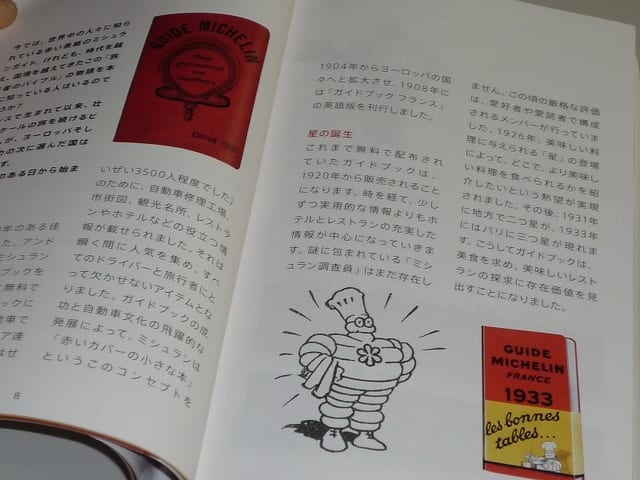 今では、世界中の人々に知ら
れている赤い表紙のミシュラ
ンガイド。けれども、時代を越
え、国境を越えてきたこの「旅
者のバイブル」の物語を本
に知っている人はいるので
うか？
ンスで生まれて以来、壮
クールの旅を続けるビ
んが、ヨーロッパそし
カの次に選んだ国は
す。
のある日から始ま
年のある佳
た。アンド
ミシュラン
ブックを
無料で
ックに
動車で
ア達
はせ
8
GUIDE MICHELIN
Offert
gracieusement
aux
Chauffeurs
EDITION 1900
いぜい3500人程度でした)
のために、自動車修理工場、
市街図、観光名所、レストラ
ンやホテルなどの役立つ情
報が載せられました。それは
瞬く間に人気を集め、すべ
てのドライバーと旅行者にと
って欠かせないアイテムとな
りました。ガイドブックの成
功と自動車文化の飛躍的な
発展によって、ミシュランは
「赤いカバーの小さな本」
というこのコンセプトを
1904年からヨーロッパの国
々へと拡大させ、1908年に
は「ガイドブック フランス」
の英語版を刊行しました。
星の誕生
これまで無料で配布され
ていたガイドブックは、
1920年から販売されること
になります。時を経て、少し
ずつ実用的な情報よりもホ
テルとレストランの充実した
情報が中心になっていきま
す。謎に包まれている「ミシ
ュラン調査員」はまだ存在し
ません。この頃の厳格な評価
は、愛好者や愛読者で構成
されるメンバーが行っていま
した。1926年、美味しい料
理に与えられる「星」の登場
によって、どこで、より美味し
い料理を食べられるかを紹
介したいという熱望が実現
されました。その後、1931年
に地方で二つ星が、1933年
にはパリに三つ星が現れま
す。こうしてガイドブックは、
美食を求め、美味しいレスト
ランの探求に存在価値を見
出すことになりました。
GUIDE
MICHELIN
FRANCE
1933
les bonnes
tables...